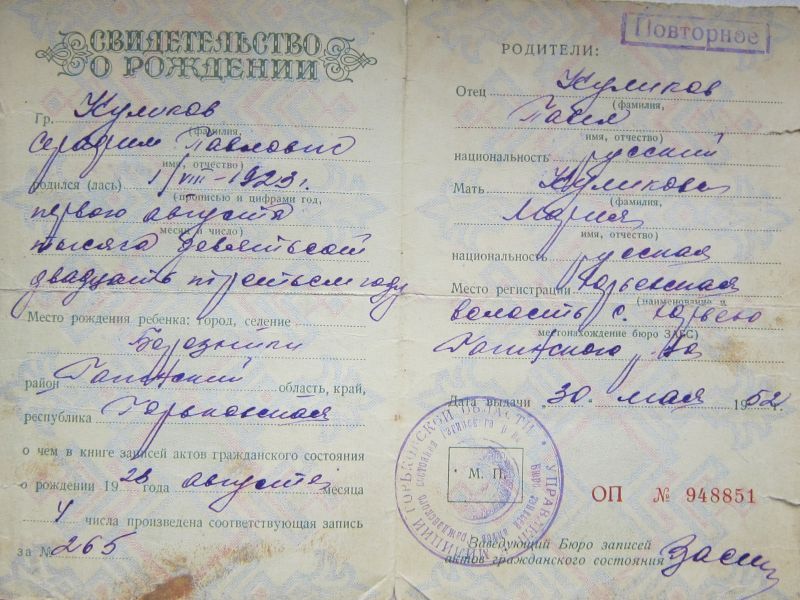 СВИДЕТЕЛЬСТВО
О РОЖДЕНИИ
Гр. Куликов
(фамилия,
Серафим Павлович
имя, отчество)
родился (лась) 1/VIII-1923 г.
(прописью и цифрами год,
первого августа
месяц и число)
тысяча девятьсот
двадцать третьем году
Место рождения ребенка: город, селение
район Гагинский область, край,
республика Горьковская
о чем в книге записей актов гражданского состояния
о рождении 19 года августа месяца
4 числа произведена соответствующая запись
за № 265
Повторное
РОДИТЕЛИ:
Отец Куликов
(фамилия,
Павел
имя, отчество)
национальность русский
Мать Куликова
(фамилия,
Мария
имя, отчество)
национальность русская
Место регистрации Юрьевская
(наименование и
волость с. Юрьево
местонахождение бюро ЗАГС)
Гагинского р-на
Дата выдачи 30. мая 1952 г.
М. П.
ОП № 948851
Заведующий Бюро записей
актов гражданского состояния